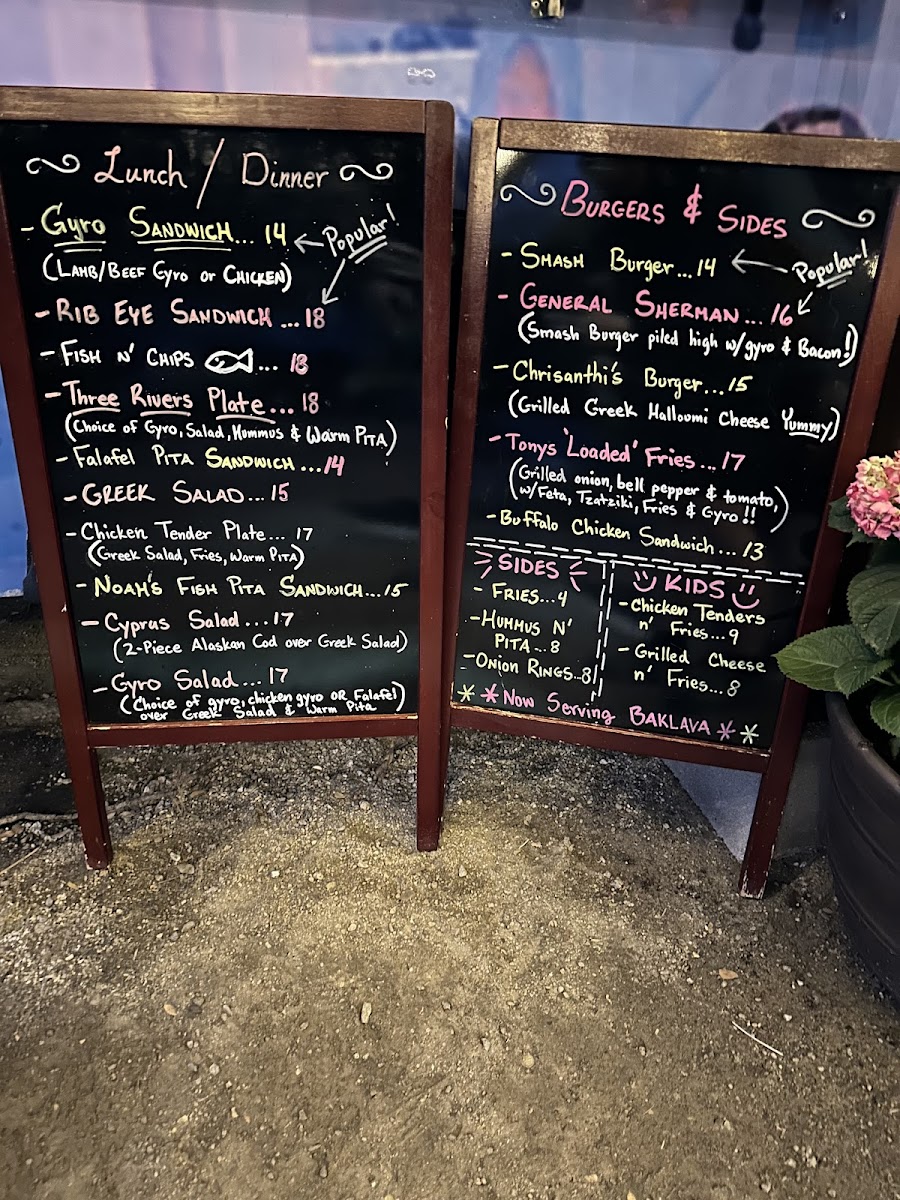 Lunch / Dinner
- Gyro SANDWICH... 14
Popular!
(LAMB/BEEF Gyro or CHICKEN)
- RIB EYE SANDWICH ... 18
- FISH N' CHIPS ... 18
- Three Rivers Plate... 18
(Choice of Gyro, Salad, Hummus & Warm PITA)
- Falafel PITA SANDWICH ...14
- GREEK SALAD... 15
- Chicken Tender Plate... 17
(Greek Salad, Fries, Warm PITA)
- NOAH'S FISH PITA SANDWICH...15
- Cyprus Salad...17
(2-Piece Alaskan Cod over Greek Salad)
- Gyro Salad... 17
(Choice of gyro, chicken gyro OR Falafel)
over Greek Salad & Warm Pita
BURGERS & SIDES
- SMASH Burger...14
Popular!
- GENERAL SHERMAN... 16
(Smash Burger piled high w/gyro & Bacon!)
- Chrisanthi's Burger...15
(Grilled Greek Halloumi Cheese Yummy)
- Tonys 'Loaded' Fries... 17
(Grilled onion, bell pepper & tomato,
w/Feta, Tzatziki, Fries & Gyro!!)
- Buffalo Chicken Sandwich... 13
SIDES
- FRIES...4
- HUMMUS N'
PITA...8
- Onion RINGS...8
KIDS
- Chicken Tenders
n' Fries...9
- Grilled Cheese
n' Fries... 8
* * Now Serving BAKLAVA * *